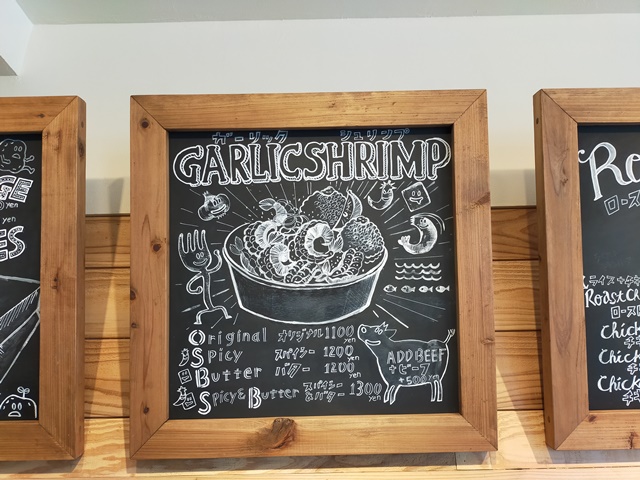 ガーリック シュリンプ
GARLIC SHRIMP
Original オリジナル 1100 yen
Spicy スパイシー 1200 yen
Butter バター 1200 yen
Spicy & Butter スパイシー&バター 1300 yen
ADD BEEF
+ビーフ
+500yen
yen
yen
ES
Ro
ロース
Roast Ch
ロース
Chick
チキ
Chick
チキ
Chick
チキ